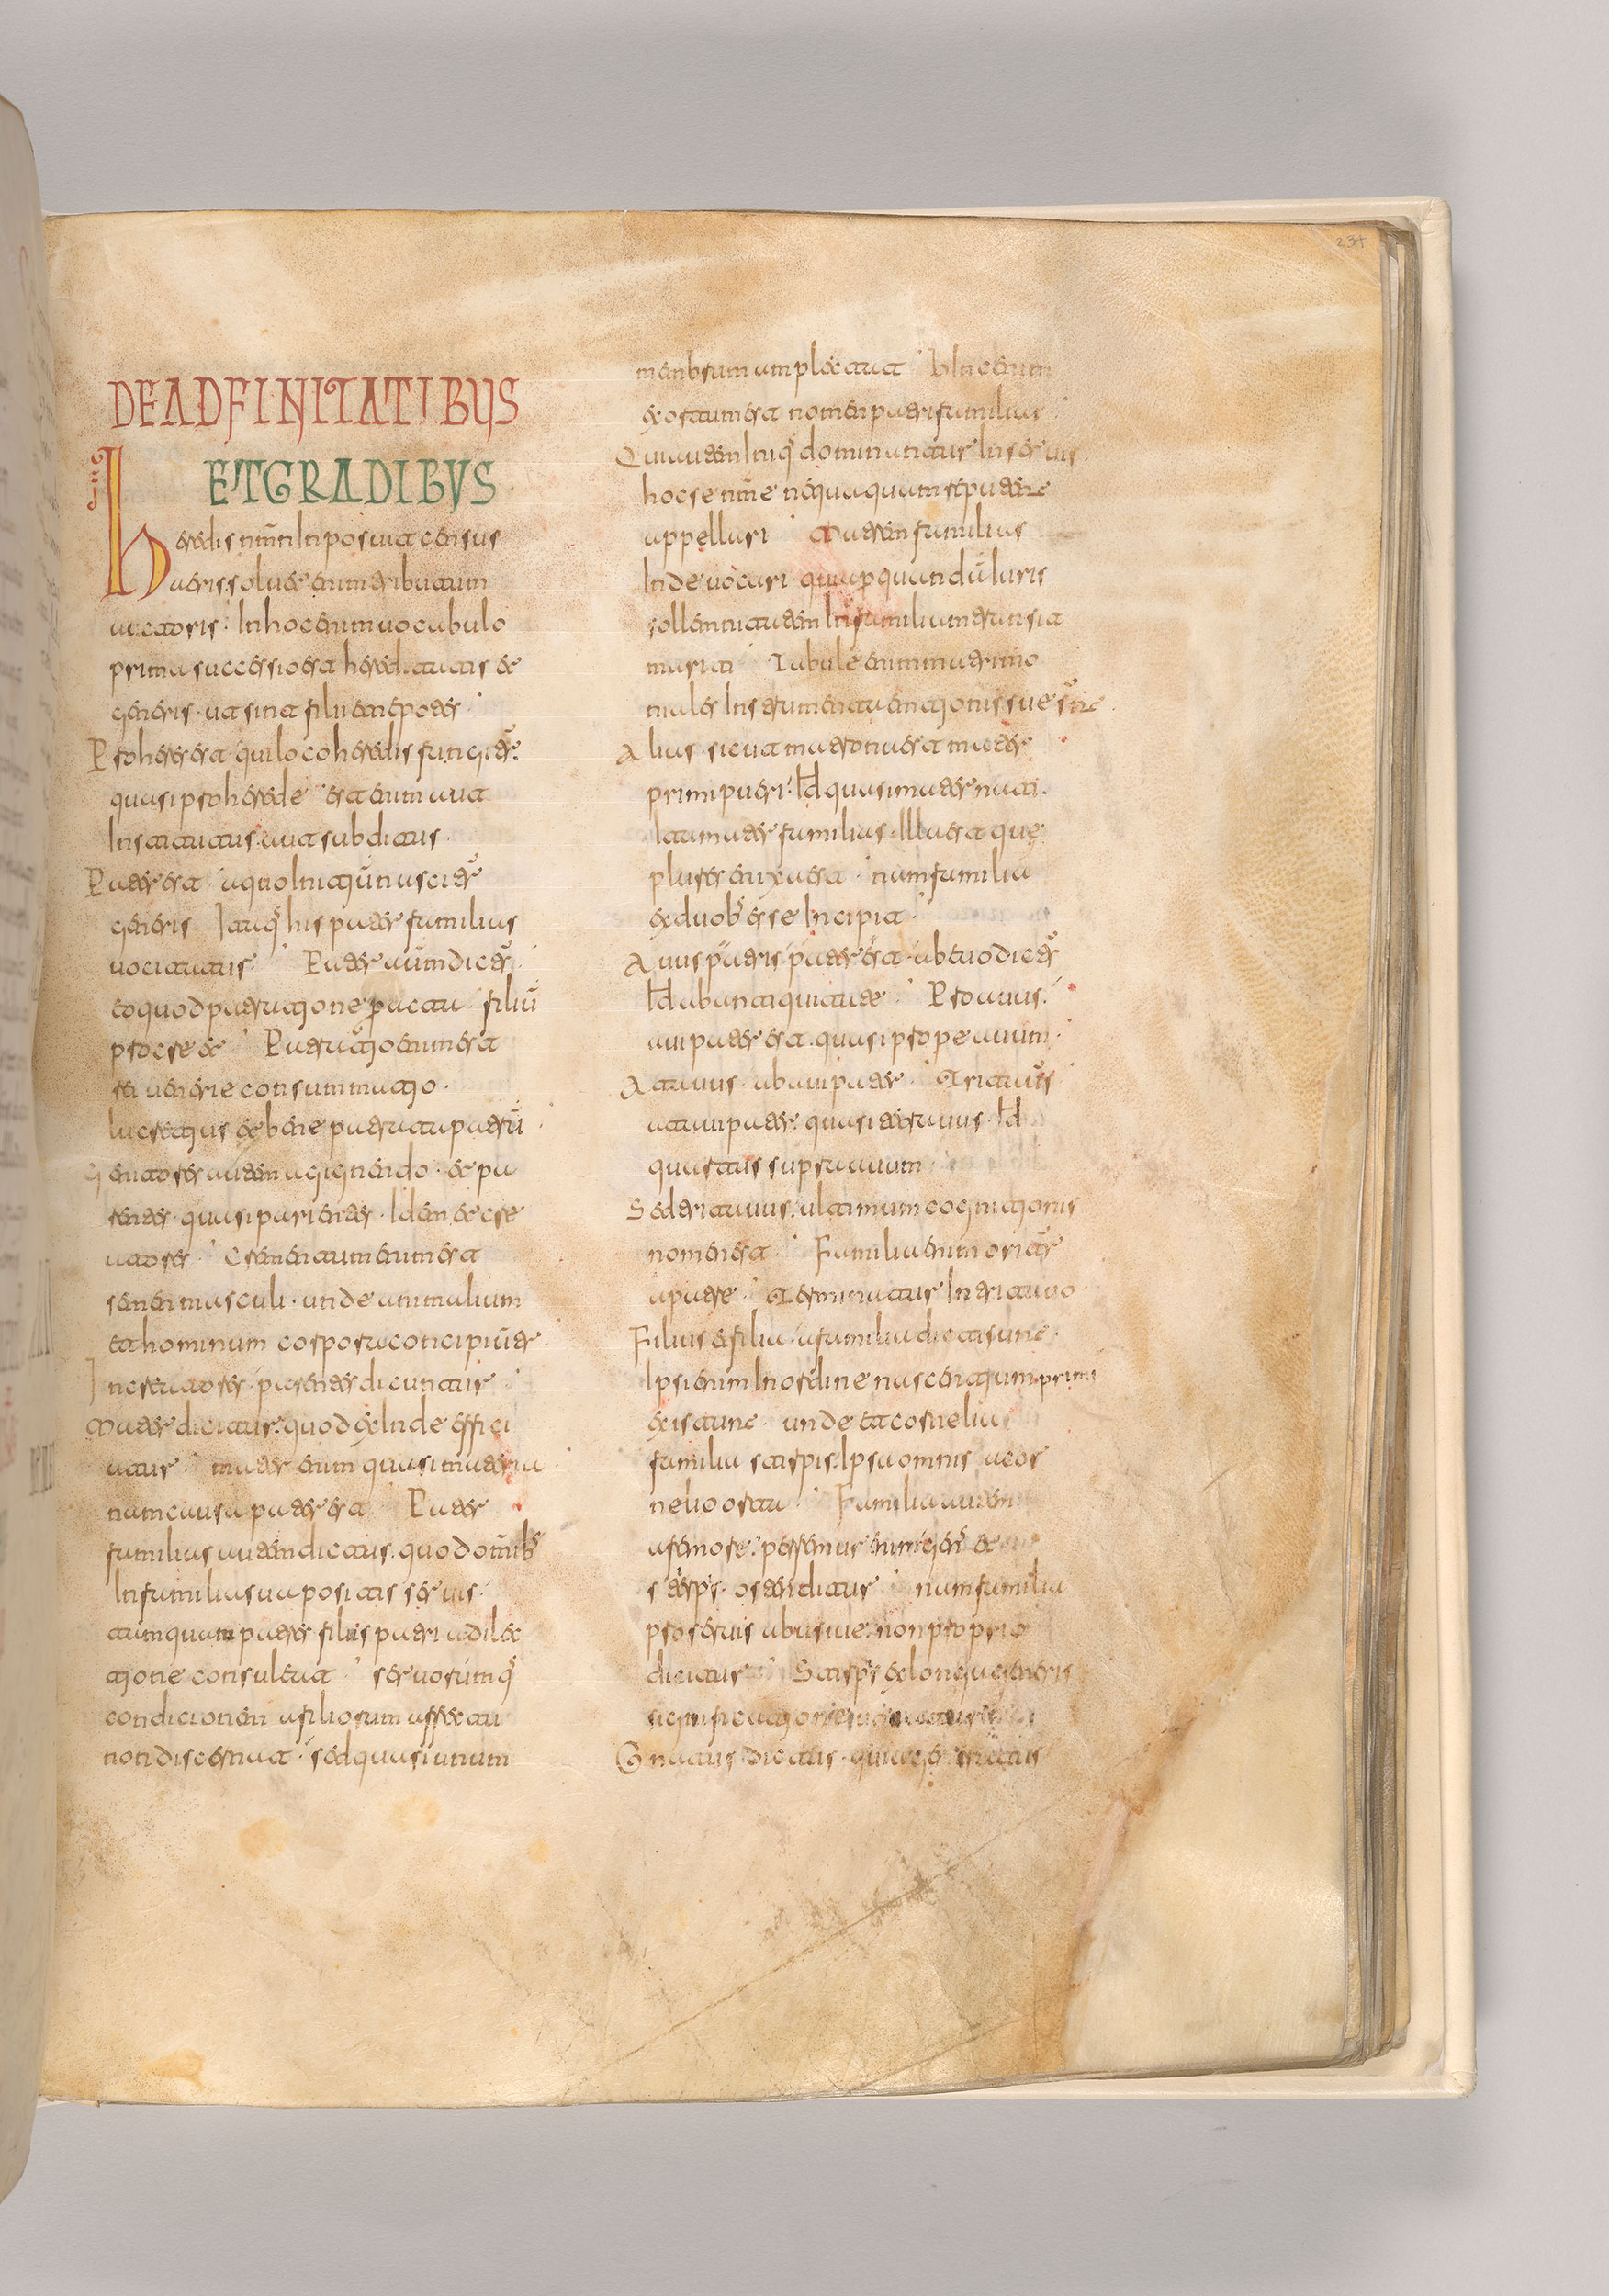 DE ADFINITATIBUS
ET GRADIBUS
heredis nmn Inposuit census
aeris. soluet enim tributum
auctoris. In hoc enim uocabulo
prima successio est hereditatis et
generis. ut sint filii et nepotes
Proheres est qui loco heredis fungitur.
quasi pro herede est enim aut
Institutus. aut subditus.
Pater est a quo Initium nascitur
generis Itaq his pater familias
uocitatus. Pater autem dicitur
eo quod patratione peracta filiū
procreet Patratio enim est
rei uenerie consummatio.
lucretius et bene patratu patrū
Genitores autem a gignendo. et pa
rentes. quasi parientes. Idem et cre
atores. Crementum enim est
semen masculi. unde animalium
et hominum corpora concipiuntur
Inc creatores parentes dicuntur
Mater dicitur. quod exInde effici
atur mater enim quasi materia
nam causa pater est Pater
familias autem dictus. quod omīb
In familia sua positis seruis.
tamquam pater filiis patria dilec
tione consulat seruorumq
condicionem a filiorum affectu
non discernat. sed quasi unum
menbrum amplectat hInc enim
exortum est nomen patris familias
Qui autem Iniq dominantur In seruis.
hoc se nmne nequaquam reputent
appellari Matrem familias
Inde uocari. quia per quandū Iuris
sollemnitatem In familiam transit
mariti Tabule enim matrimo
niales Instrumenta emtionis sue snt.
Alias sicut matrona est mater
primi pueri. Id quasi mater nati.
Ita mater familias. Illa est que
plures enixa est. nam familia
ex duob esse Incipit
Auus patris pater est. ab euo dictus
Id ab antiquitate Proauus.
aui pater est. quasi prope auum.
Atauus. abaui pater Tritauus
ataui pater. quasi tetrauus. Id
quartus supra auum
Sed tritauus. ultimum cognitionis
nomen est. Familia enim oritur
a patre Terminatur In tritauo.
Filius et filia. a familia dicti sunt.
Ipsi enim In ordine nascentium primi
existunt unde et cornelia
familia stirpis. Ipsa omnis a cor
nelio orta Familia autem
a femore. femore enim gen et
stirps. ostenditur nam familia
pro seruis abusiue. non proprie
dicitur Stirps ex longa generis
significatione
Gnatus dictus. quia